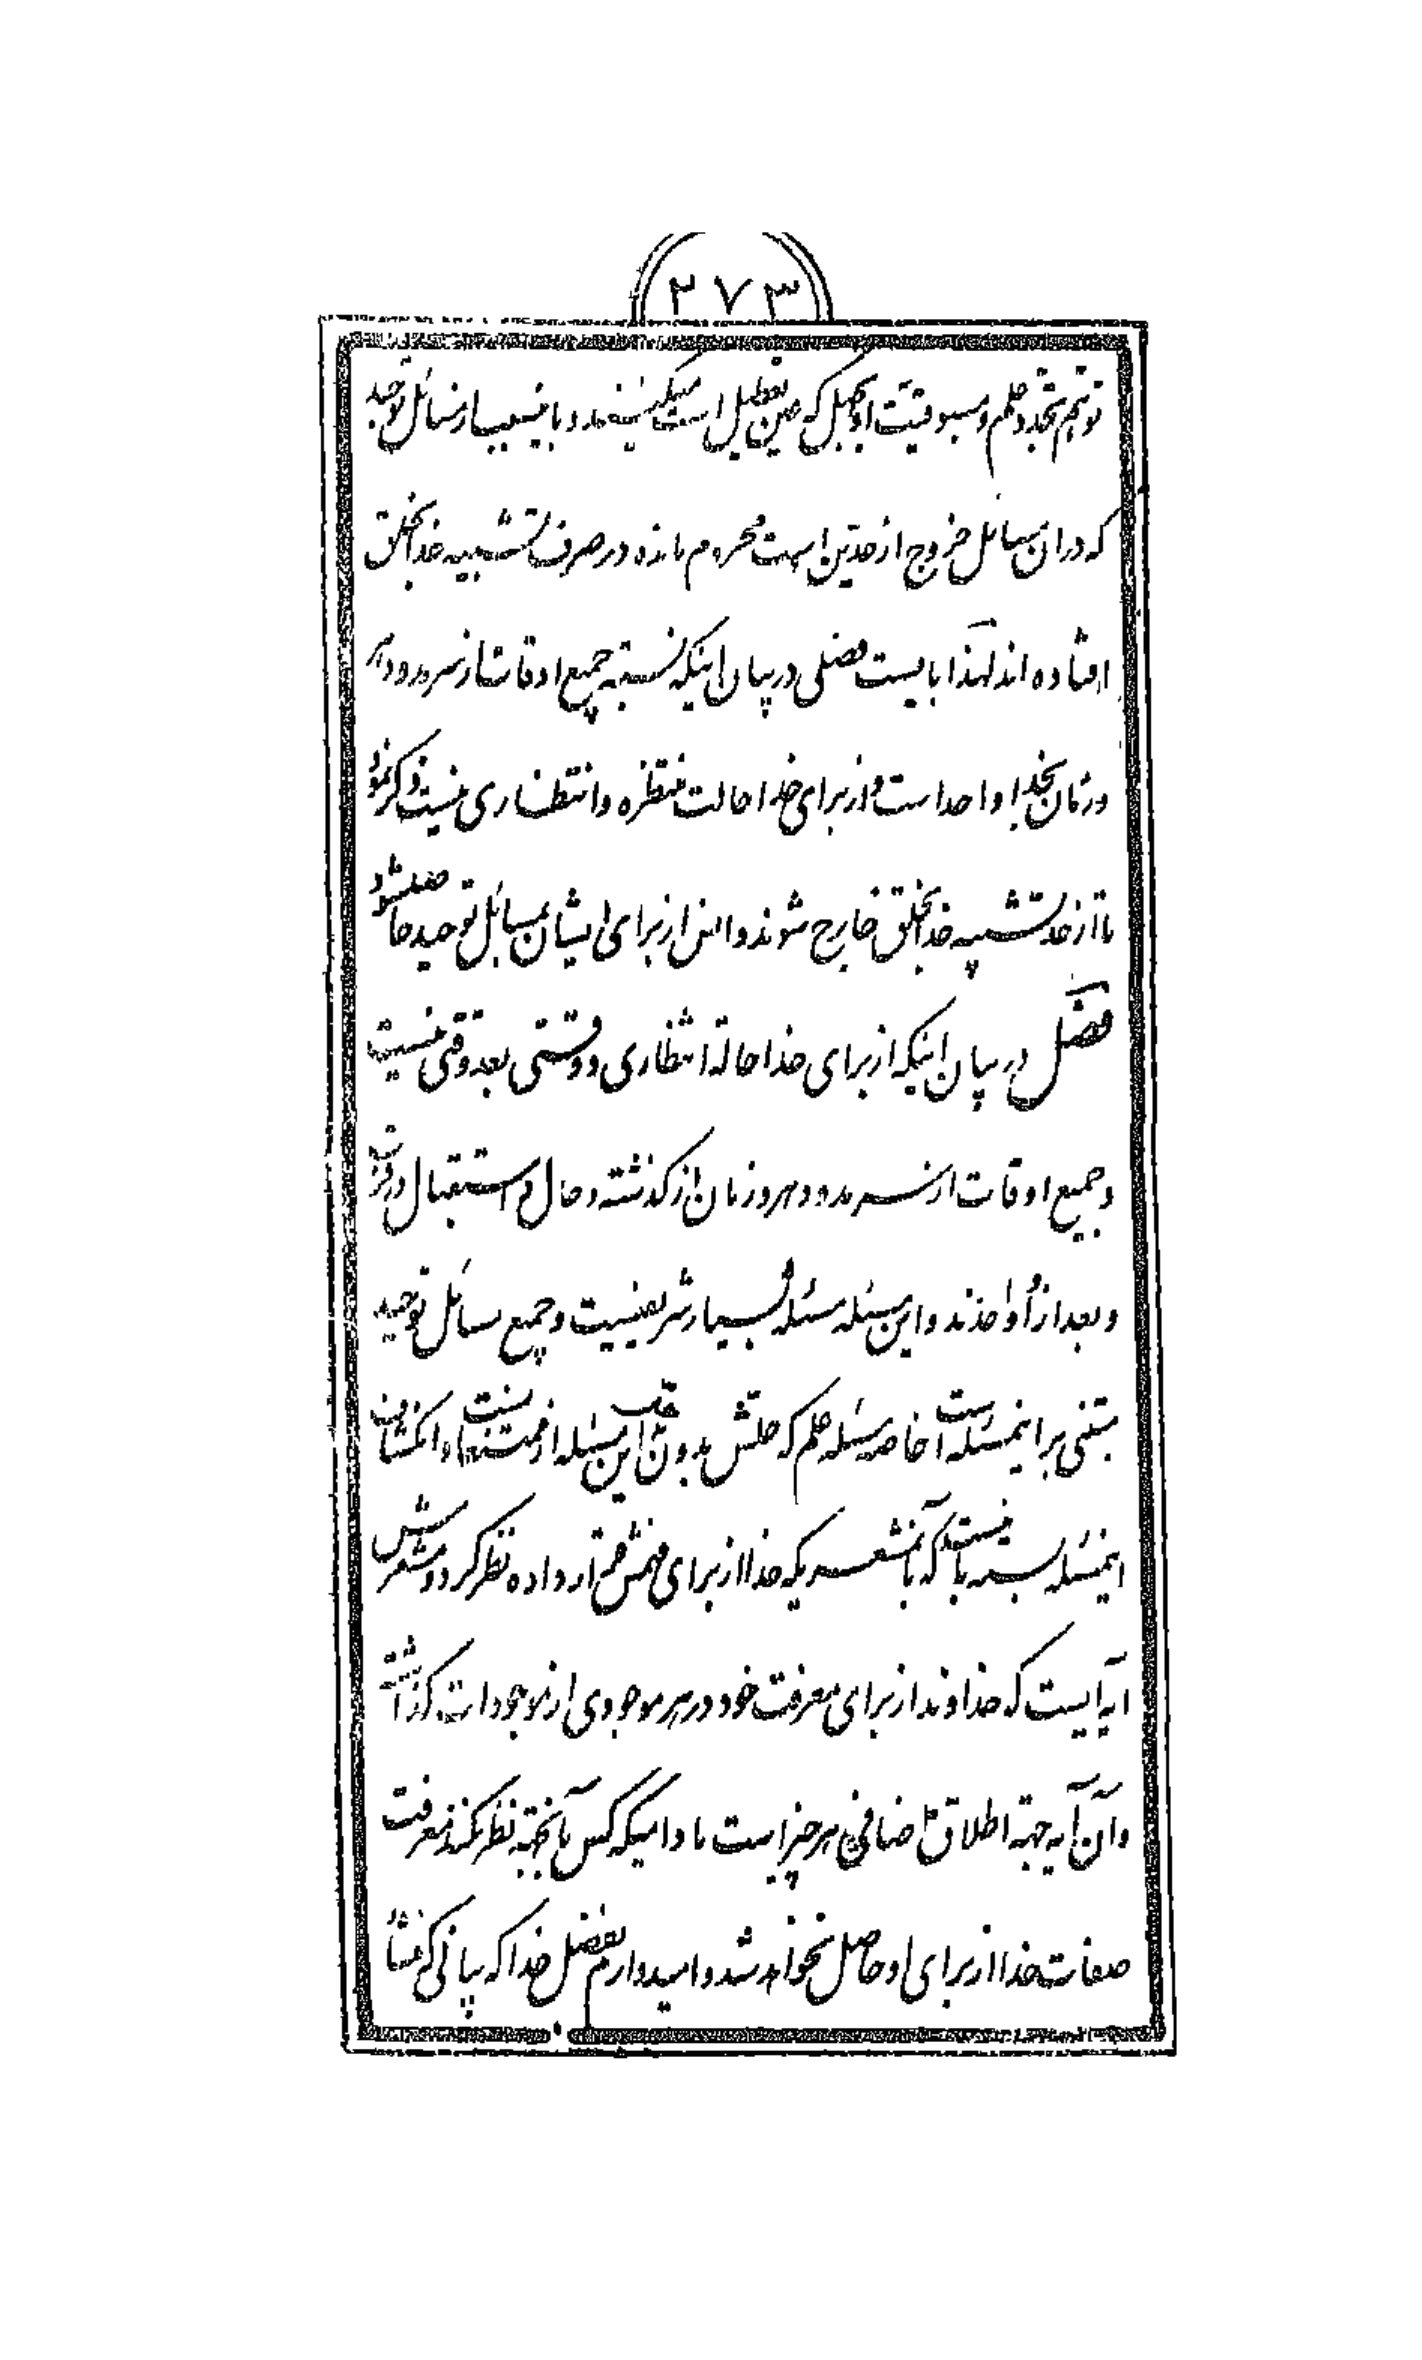 ۲۷۳
توهم تجدد علم و مسبوقیت او بجهل که عین تعطیل است میکنند و باینسبب از مسائل توحید
که در ان مسائل خروج از حدین است محروم مانده در صرف تشبیه خدا بخلق
افتاده اند لهذا بایست فصلی در بیان اینکه نسبة جمیع اوقات از سرمد و دهر
و زمان بخدا واحد است و از برای خدا حالت منتظره و انتظاری نیست ذکر نمود
تا از حد تشبیه خدا بخلق خارج شوند و انس از برای ایشان بمسائل توحید حاصل شود
فصل در بیان اینکه از برای خدا حالة انتظاری و وقتی بعد وقتی نیست
و جمیع اوقات از سرمد و دهر و زمان از گذشته و حال و استقبال در قرب
و بعد از او واحدند و این مسئله مسئله بسیار شریفیست و جمیع مسائل توحید
مبتنی بر اینمسئله است خاصه مسئله علم که حلش بدون حل این مسئله از ممتنعات است و انکشاف
اینمسئله بسته باینست که بآنمشعریکه خدا از برای فهمش قرار داده نظر کرد و مشعرش
آیه ایست که خداوند از برای معرفت خود در هر موجودی از موجودات گذاشته
و آن آیه جهة اطلاق اضافی هر چیزیست مادامیکه کس بآنجهة نظر نکند معرفت
صفات خدا از برای او حاصل نخواهد شد و امیدوارم بفضل خدا که بیانی کنم